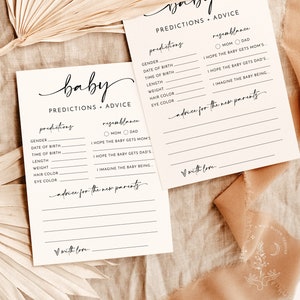 baby
PREDICTIONS + ADVICE
predictions
resemblance
GENDER
MOM DAD
DATE OF BIRTH
I HOPE THE BABY GETS MOM'S...
TIME OF BIRTH
LENGTH
I HOPE THE BABY GETS DAD'S...
WEIGHT
HAIR COLOR
I IMAGINE THE BABY BEING...
EYE COLOR
advice for the new parents
with love
baby
PREDICTIONS + ADVICE
predictions
resemblance
GENDER
MOM DAD
DATE OF BIRTH
I HOPE THE BABY GETS MOM'S...
TIME OF BIRTH
LENGTH
I HOPE THE BABY GETS DAD'S...
WEIGHT
HAIR COLOR
I IMAGINE THE BABY BEING...
EYE COLOR
advice for the new parents
with love